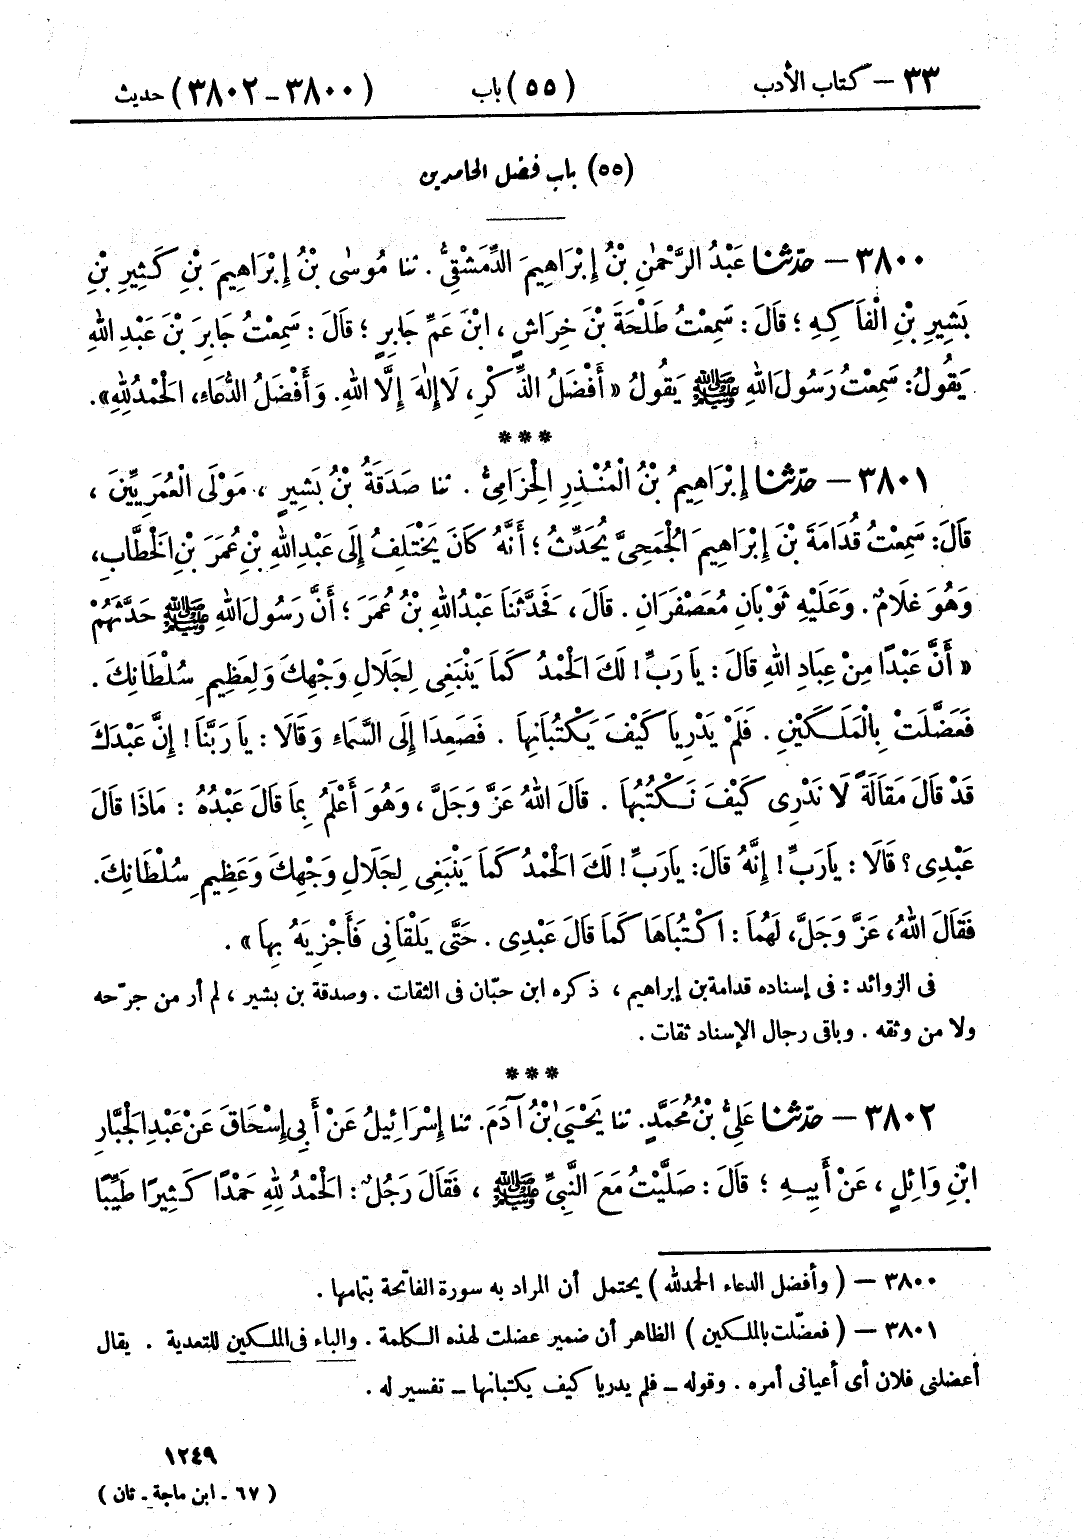 ٣٣ — كتاب الأدب (٥٥) باب (٣٨٠٠-٣٨٠٢) حديث
(٥٥) باب فضل الحامدين
٣٨٠٠ — حَدَّثَنَا عَبْدُ الرَّحْمٰنِ بْنُ إِبْرَاهِيمَ الدِّمَشْقِيُّ . ثنا مُوسٰى بْنُ إِبْرَاهِيمَ بْنِ كَثِيرِ بْنِ
بَشِيرِ بْنِ الْفَاكِهِ ؛ قَالَ : سَمِعْتُ طَلْحَةَ بْنَ خِرَاشٍ ، ابْنَ عَمِّ جَابِرٍ ؛ قَالَ : سَمِعْتُ جَابِرَ بْنَ عَبْدِ اللهِ
يَقُولُ : سَمِعْتُ رَسُولَ اللهِ ﷺ يَقُولُ « أَفْضَلُ الذِّكْرِ ، لَا إِلٰهَ إِلَّا اللهُ . وَأَفْضَلُ الدُّعَاءِ ، الْحَمْدُ لِلهِ » .
***
٣٨٠١ — حَدَّثَنَا إِبْرَاهِيمُ بْنُ الْمُنْذِرِ الْحِزَامِيُّ . ثنا صَدَقَةُ بْنُ بَشِيرٍ ، مَوْلَى الْعُمَرِيِّينَ ،
قَالَ : سَمِعْتُ قُدَامَةَ بْنَ إِبْرَاهِيمَ الْجُمَحِيَّ يُحَدِّثُ ؛ أَنَّهُ كَانَ يَخْتَلِفُ إِلَى عَبْدِ اللهِ بْنِ عُمَرَ بْنِ الْخَطَّابِ ،
وَهُوَ غُلَامٌ . وَعَلَيْهِ ثَوْبَانِ مُعَصْفَرَانِ . قَالَ ، فَحَدَّثَنَا عَبْدُ اللهِ بْنُ عُمَرَ ؛ أَنَّ رَسُولَ اللهِ ﷺ حَدَّثَهُمْ
« أَنَّ عَبْدًا مِنْ عِبَادِ اللهِ قَالَ : يَا رَبِّ ! لَكَ الْحَمْدُ كَمَا يَنْبَغِي لِجَلَالِ وَجْهِكَ وَلِعَظِيمِ سُلْطَانِكَ .
فَعَضَّلَتْ بِالْمَلَكَيْنِ . فَلَمْ يَدْرِيَا كَيْفَ يَكْتُبَانِهَا . فَصَعِدَا إِلَى السَّمَاءِ وَقَالَا : يَا رَبَّنَا ! إِنَّ عَبْدَكَ
قَدْ قَالَ مَقَالَةً لَا نَدْرِي كَيْفَ نَكْتُبُهَا . قَالَ اللهُ عَزَّ وَجَلَّ ، وَهُوَ أَعْلَمُ بِمَا قَالَ عَبْدُهُ : مَاذَا قَالَ
عَبْدِي ؟ قَالَا : يَا رَبِّ ! إِنَّهُ قَالَ : يَا رَبِّ ! لَكَ الْحَمْدُ كَمَا يَنْبَغِي لِجَلَالِ وَجْهِكَ وَعَظِيمِ سُلْطَانِكَ .
فَقَالَ اللهُ ، عَزَّ وَجَلَّ ، لَهُمَا : اكْتُبَاهَا كَمَا قَالَ عَبْدِي . حَتَّى يَلْقَانِي فَأَجْزِيَهُ بِهَا » .
فى الزوائد : فى إسناده قدامة بن إبراهيم ، ذكره ابن حبّان فى الثقات . وصدقة بن بشير ، لم أر من جرّحه
ولا من وثقه . وباقى رجال الإسناد ثقات .
***
٣٨٠٢ — حَدَّثَنَا عَلِيُّ بْنُ مُحَمَّدٍ . ثنا يَحْيَىٰ بْنُ آدَمَ . ثنا إِسْرَائِيلُ عَنْ أَبِي إِسْحَاقَ عَنْ عَبْدِ الْجَبَّارِ
ابْنِ وَائِلٍ ، عَنْ أَبِيهِ ؛ قَالَ : صَلَّيْتُ مَعَ النَّبِيِّ ﷺ ، فَقَالَ رَجُلٌ : الْحَمْدُ لِلهِ حَمْدًا كَثِيرًا طَيِّبًا
٣٨٠٠ — ( وأفضل الدعاء الحمد لله ) يحتمل أن المراد به سورة الفاتحة بتمامها .
٣٨٠١ — ( فعضّلت بالملكين ) الظاهر أن ضمير عضلت لهذه الكلمة . والباء فى الملكين للتعدية . يقال
أعضلنى فلان أى أعيانى أمره . وقوله — فلم يدريا كيف يكتبانها — تفسير له .
١٢٤٩
( ٦٧ - ابن ماجة - ثان )